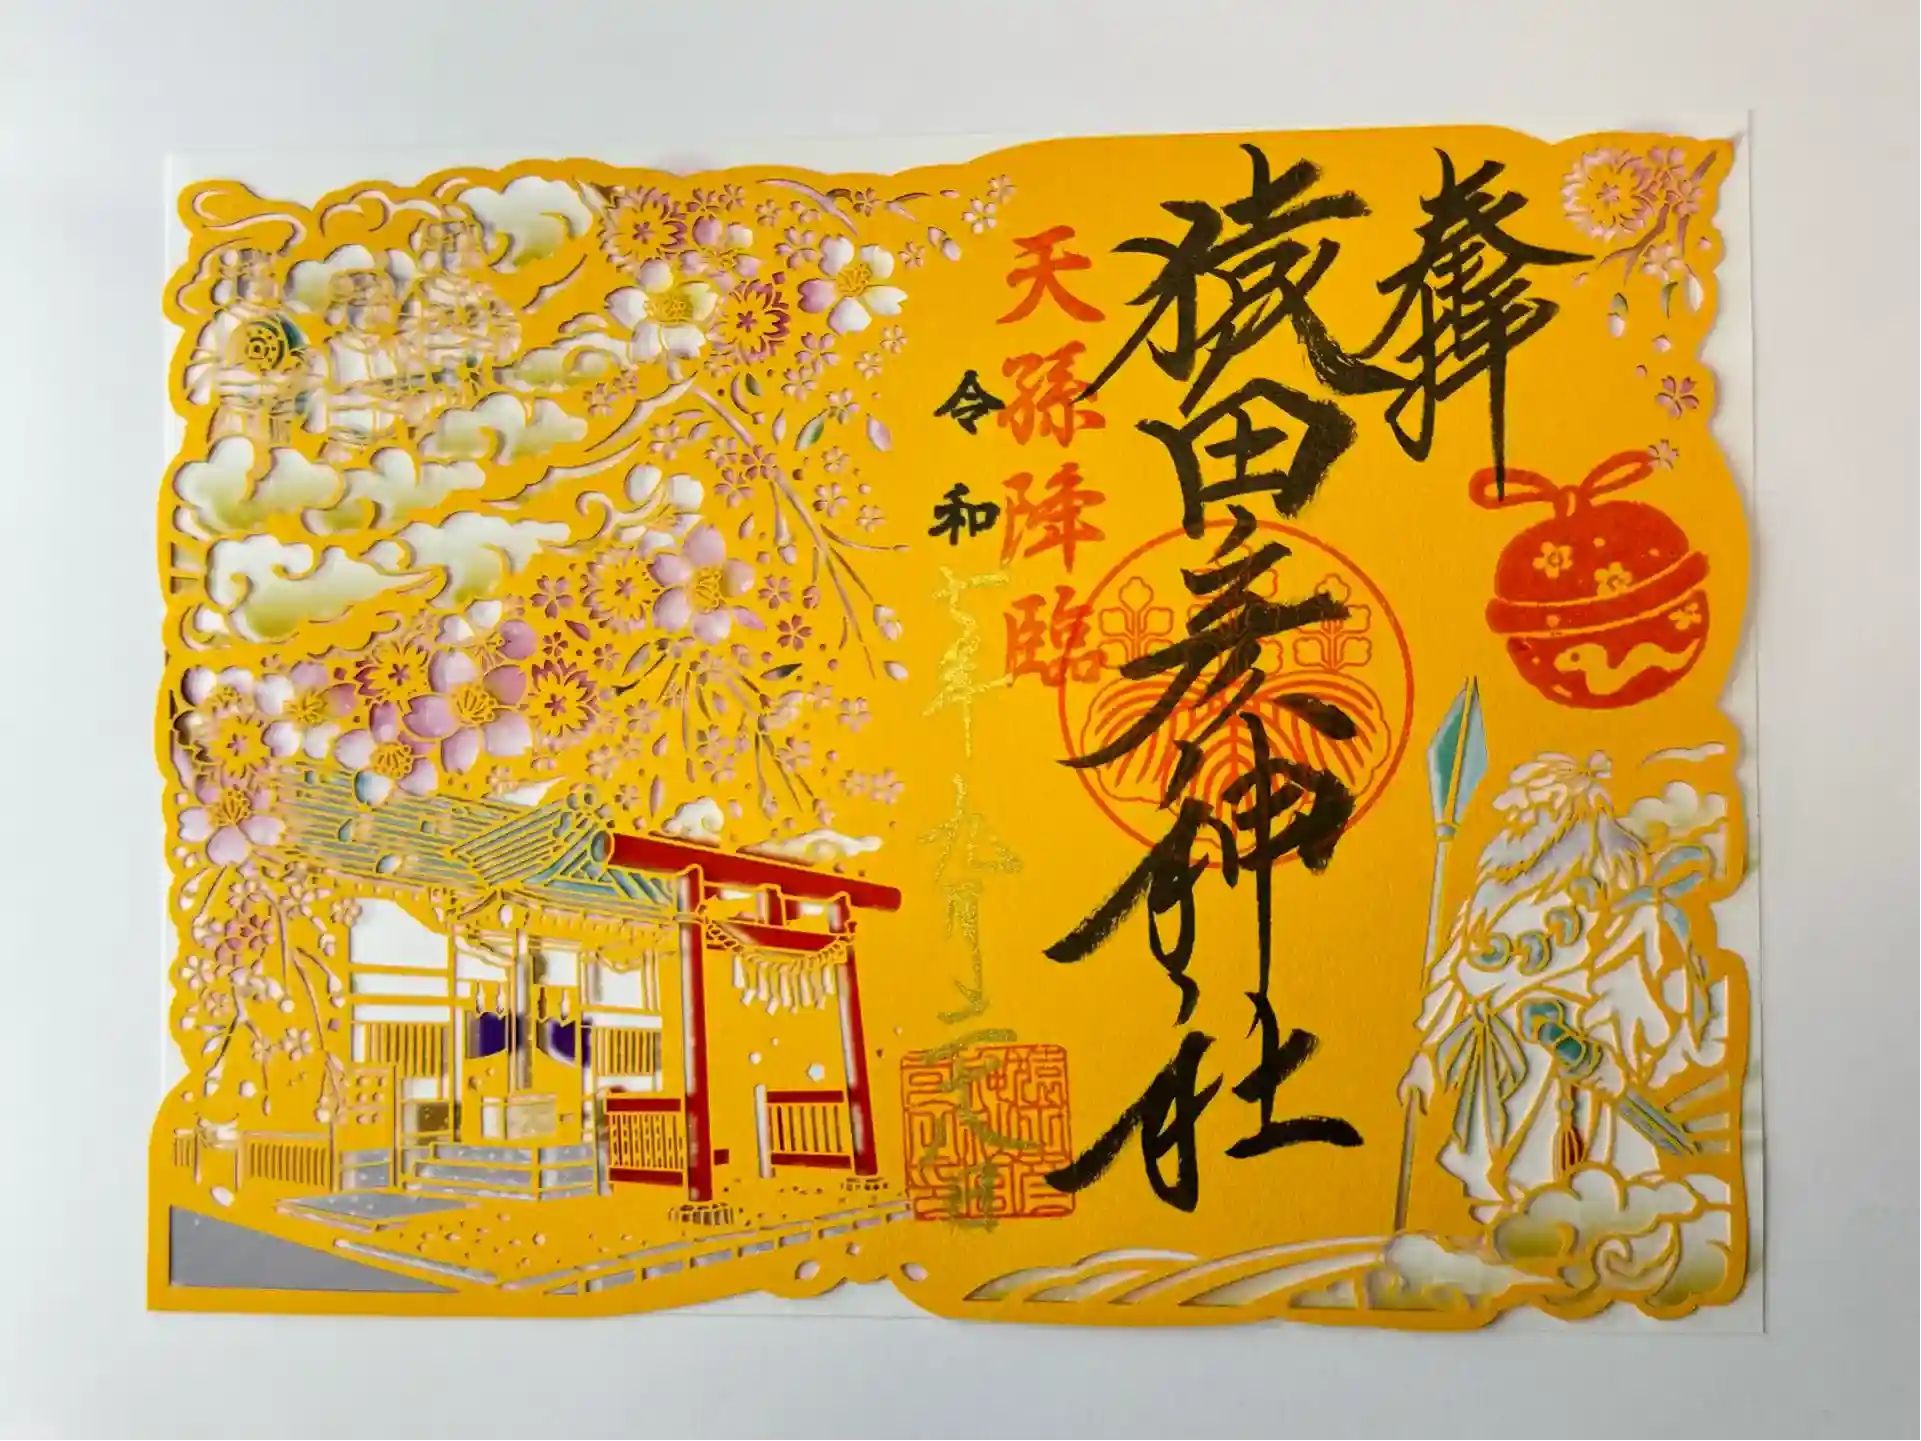 奉拝
猿田彦神社
天孫降臨
令和七年